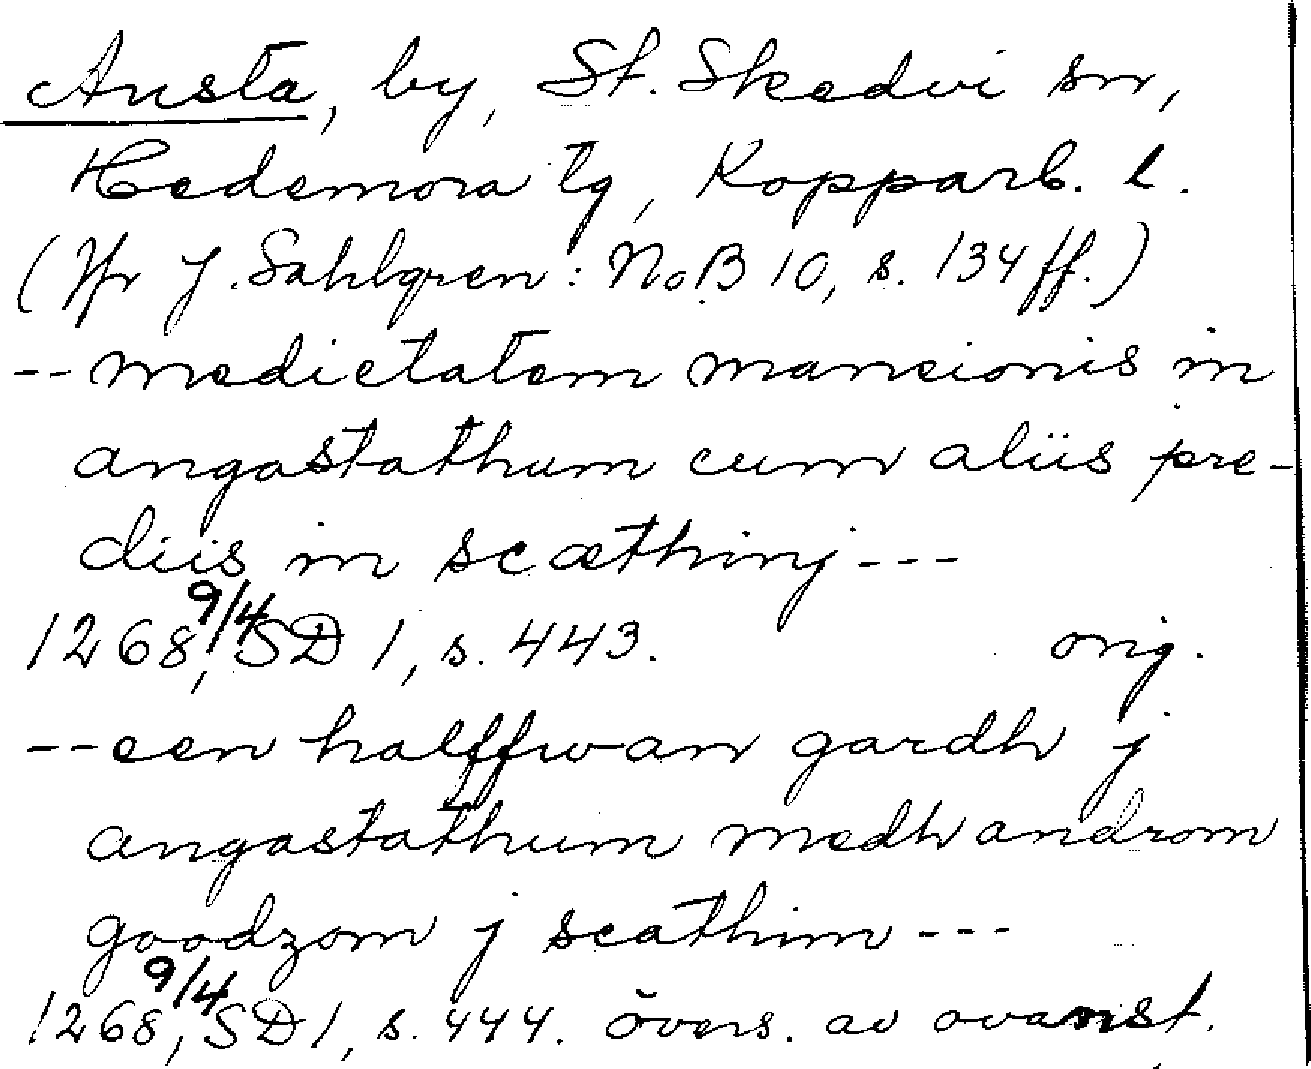 Austa, by, St. Skedvi sn,
Hedemora tg, Kopparb. l.
(Jfr J. Sahlgren: NoB 10, s. 134 ff.)
-- medietatem mansionis in
angastathum cum aliis pre-
diis in scæthinj ---
1268 9/4, SD 1, s. 443. orig.
-- een halffwan gardh j
angastathum medh androm
goodzom j scathim ---
1268 9/4, SD 1, s. 444. övers. av ovanst.